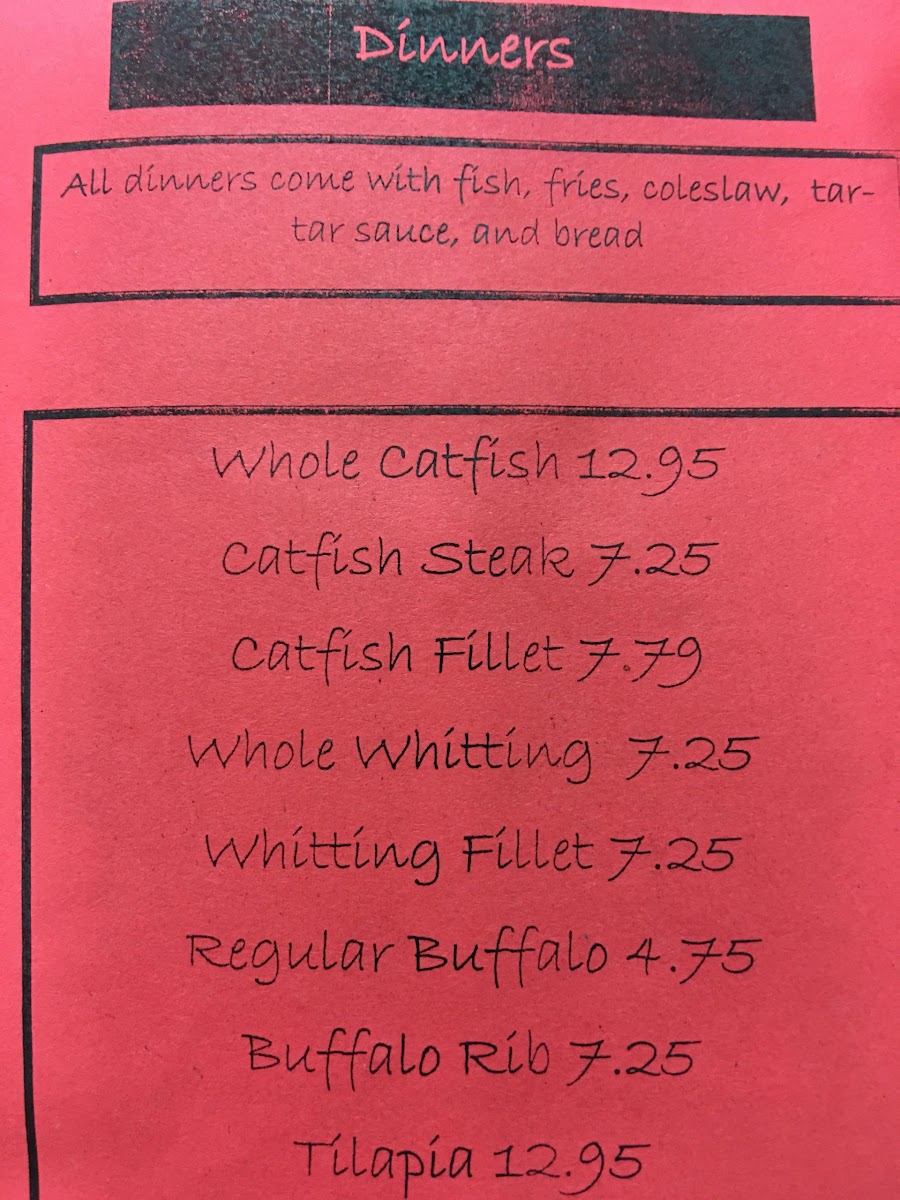 Dinners
All dinners come with fish, fries, coleslaw, tar-
tar sauce, and bread
Whole Catfish 12.95
Catfish Steak 7.25
Catfish Fillet 7.79
Whole Whitting 7.25
Whitting Fillet 7.25
Regular Buffalo 4.75
Buffalo Rib 7.25
Tilapia 12.95